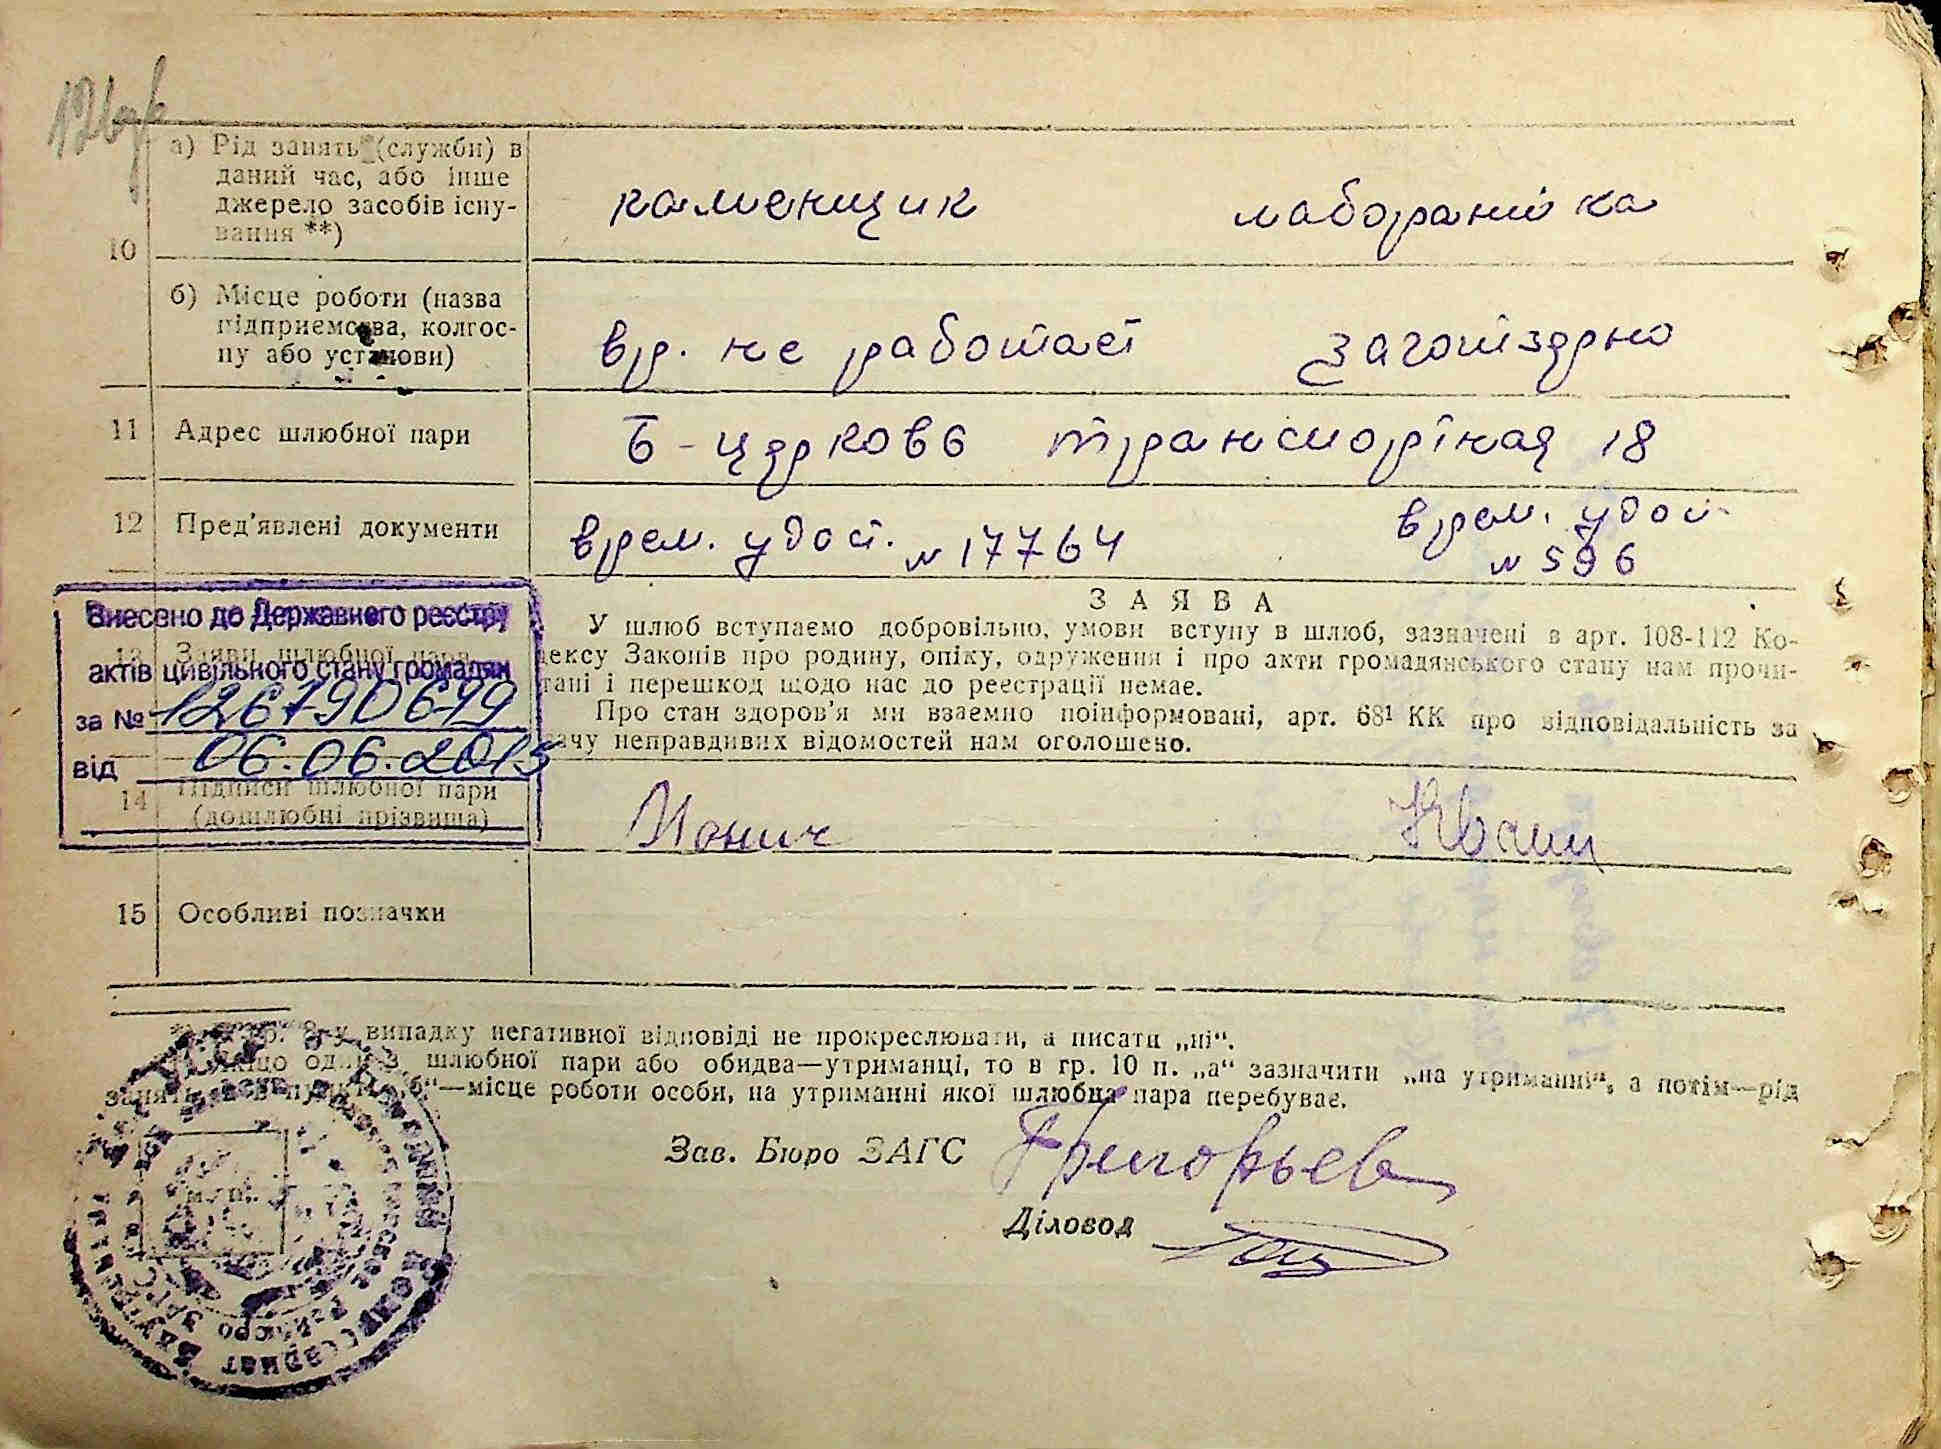 а) Рід занять (служби) в
даний час, або інше
джерело засобів існу-
вання **)
10
каменщик лаборантка
б) Місце роботи (назва
підприємства, колгос-
пу або установи)
вр. не работает заготзерно
11 Адрес шлюбної пари
Б-церковь транспортная 18
12 Пред'явлені документи
врем. удост. N 17764
врем. удос
N 596
Внесено до Державного реєстру
актів цивільного стану громадян
за №
від 06.06.2015
13 Заяви шлюбної пари
ЗАЯВА
У шлюб вступаємо добровільно, умови вступу в шлюб, зазначені в арт. 108-112 Ко-
дексу Законів про родину, опіку, одруження і про акти громадянського стану нам прочи-
тані і перешкод щодо нас до реєстрації немає.
Про стан здоров'я ми взаємно поінформовані, арт. 68¹ КК про відповідальність за
дачу неправдивих відомостей нам оголошено.
14 Підписи шлюбної пари
(дошлюбні прізвища)
15 Особливі позначки
у випадку негативної відповіді не прокреслювати, а писати „ні“.
Якщо один з шлюбної пари або обидва—утриманці, то в гр. 10 п. „а“ зазначити „на утриманні“, а потім—рід
занять, а в пункті „б“—місце роботи особи, на утриманні якої шлюбна пара перебуває.
Зав. Бюро ЗАГС Григорьев
Діловод
М. П.